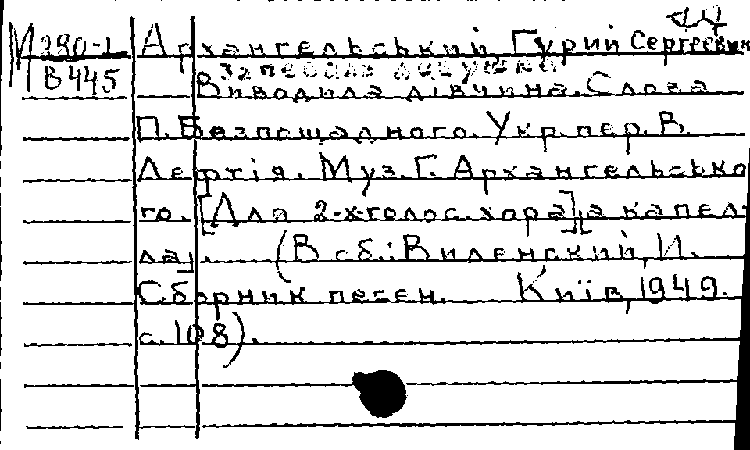 М 280-1 Архангельський Гурий Сергеевич
В 445 Запевала девушка
Виводила дівчина. Слова
П. Безпощадного. Укр. пер. В.
Лефтія. Муз. Г. Архангельсько
го. [Для 2-х голос. хора], а капел-
ла]. (В сб.: Виленский, И.
Сборник песен. Київ, 1949.
с. 108).